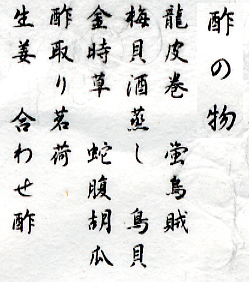 酢の物
龍皮巻　蛍烏賊
梅貝酒蒸し　鳥貝
金時草　蛇腹胡瓜
酢取り茗荷
生姜　合わせ酢